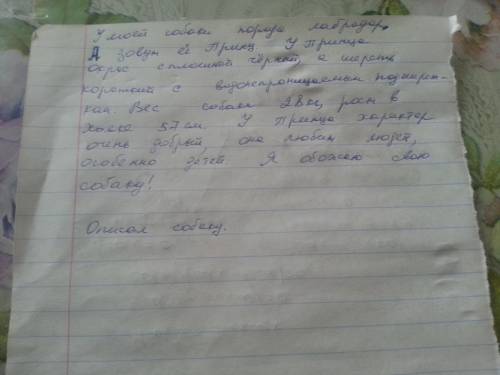 У моей собаки порода лабрадор,
А зовут её Принц. У Принца
окрас сплошной чёрный, а шерсть
короткая с водонепроницаемым подшерст-
ком. Вес собаки 28 кг, рост в
холке 57 см. У Принца характер
очень добрый, она любит людей,
особенно детей. Я обожаю свою
собаку!
Описал собаку.